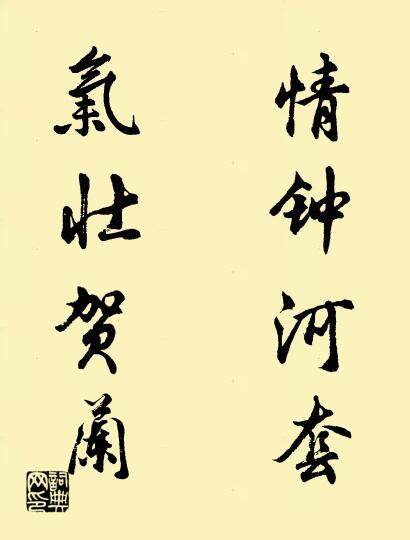 情钟河套
氣壮贺蘭
詞典网